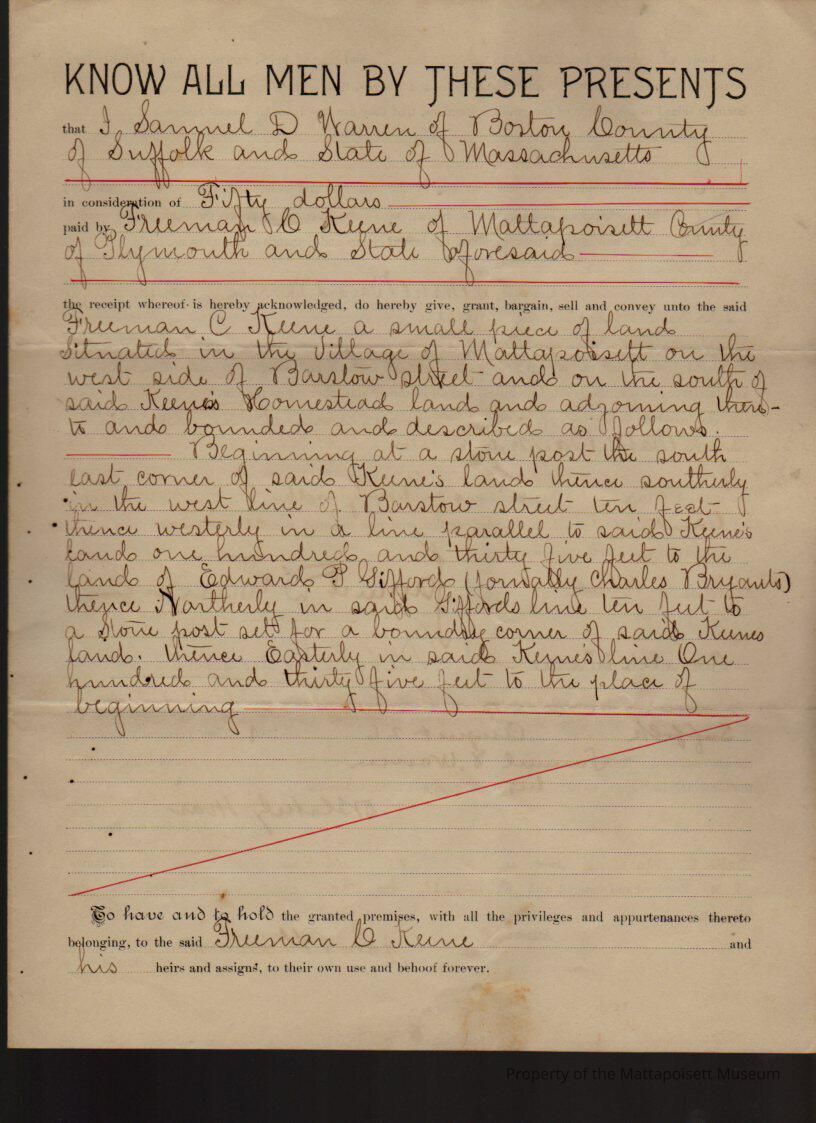 KNOW ALL MEN BY THESE PRESENTS
that I, Samuel D Warren of Boston County
of Suffolk and State of Massachusetts
in consideration of Fifty dollars
paid by Freeman C Keene of Mattapoisett County
of Plymouth and State aforesaid
the receipt whereof is hereby acknowledged, do hereby give, grant, bargain, sell and convey unto the said
Freeman C Keene a small piece of land
Situated in the Village of Mattapoisett on the
west side of Barstow street and on the south of
said Keene's Homestead land and adjoining there-
to and bounded and described as follows.
Beginning at a stone post the south
east corner of said Keene's land thence southerly
in the west line of Barstow street ten feet
thence westerly in a line parallel to said Keene's
land one hundred and thirty five feet to the
land of Edward P Gifford (formally Charles Bryants)
thence Northerly in said Giffords line ten feet to
a stone post set for a bounding corner of said Keenes
land. thence Easterly in said Keene's line One
hundred and thirty five feet to the place of
beginning
To have and to hold the granted premises, with all the privileges and appurtenances thereto
belonging, to the said Freeman C Keene and
his heirs and assigns, to their own use and behoof forever.
Property of the Mattapoisett Museum